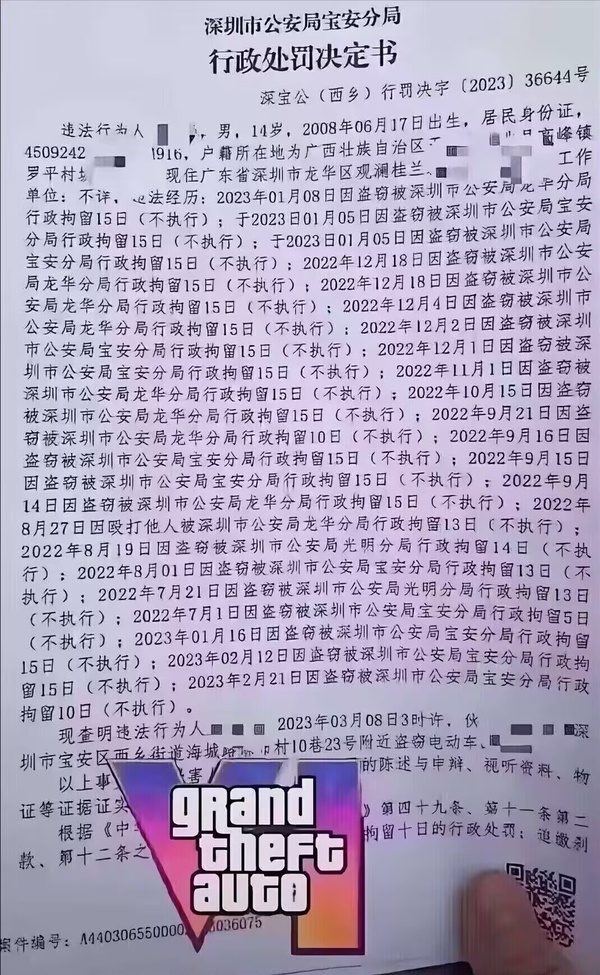 深圳市公安局宝安分局
行政处罚决定书
深宝公（西乡）行罚决字〔2023〕36644号
违法行为人 ，男，14岁，2008年06月17日出生，居民身份证，
4509242 1916，户籍所在地为广西壮族自治区 高峰镇
罗平村 现住广东省深圳市龙华区观澜桂 工作
单位：不详，违法经历：2023年01月08日因盗窃被深圳市公安局龙华分局
行政拘留15日（不执行）；于2023日01月05日因盗窃被深圳市公安局宝安
分局行政拘留15日（不执行）；于2023日01月05日因盗窃被深圳市公安局
宝安分局行政拘留15日（不执行）；2022年12月18日因盗窃被深圳市公安
局龙华分局行政拘留15日（不执行）；2022年12月18日因盗窃被深圳市公
安局龙华分局行政拘留15日（不执行）；2022年12月4日因盗窃被深圳市
公安局龙华分局行政拘留15日（不执行）；2022年12月2日因盗窃被深圳
市公安局宝安分局行政拘留15日（不执行）；2022年12月1日因盗窃被深
圳市公安局宝安分局行政拘留15日（不执行）；2022年11月1日因盗窃被
深圳市公安局龙华分局行政拘留15日（不执行）；2022年10月15日因盗窃
被深圳市公安局龙华分局行政拘留15日（不执行）；2022年9月21日因盗
窃被深圳市公安局龙华分局行政拘留10日（不执行）；2022年9月16日因
盗窃被深圳市公安局宝安分局行政拘留15日（不执行）；2022年9月15日
因盗窃被深圳市公安局宝安分局行政拘留15日（不执行）；2022年9月
14日因盗窃被深圳市公安局龙华分局行政拘留15日（不执行）；2022年
8月27日因殴打他人被深圳市公安局龙华分局行政拘留13日（不执行）；
2022年8月19日因盗窃被深圳市公安局光明分局行政拘留14日（不执
行）；2022年8月01日因盗窃被深圳市公安局宝安分局行政拘留13日（不
执行）；2022年7月21日因盗窃被深圳市公安局光明分局行政拘留13日
（不执行）；2022年7月1日因盗窃被深圳市公安局宝安分局行政拘留5日
（不执行）；2023年01月16日因盗窃被深圳市公安局宝安分局行政拘留
15日（不执行）；2023年02月12日因盗窃被深圳市公安局宝安分局行政拘
留15日（不执行）；2023年2月21日因盗窃被深圳市公安局宝安分局行政
拘留10日（不执行）。
现查明违法行为人 2023年03月08日3时许，伙 深
圳市宝安区西乡街道海城路 村10巷23号附近盗窃电动车、
以上事 害 的陈述与申辩、视听资料、物
证等证据证实
根据《中 》第四十九条、第十一条第二
款、第十二条之 拘留十日的行政处罚；追缴剥
VI
grand
theft
auto
案件编号：A4403065500002 0036075